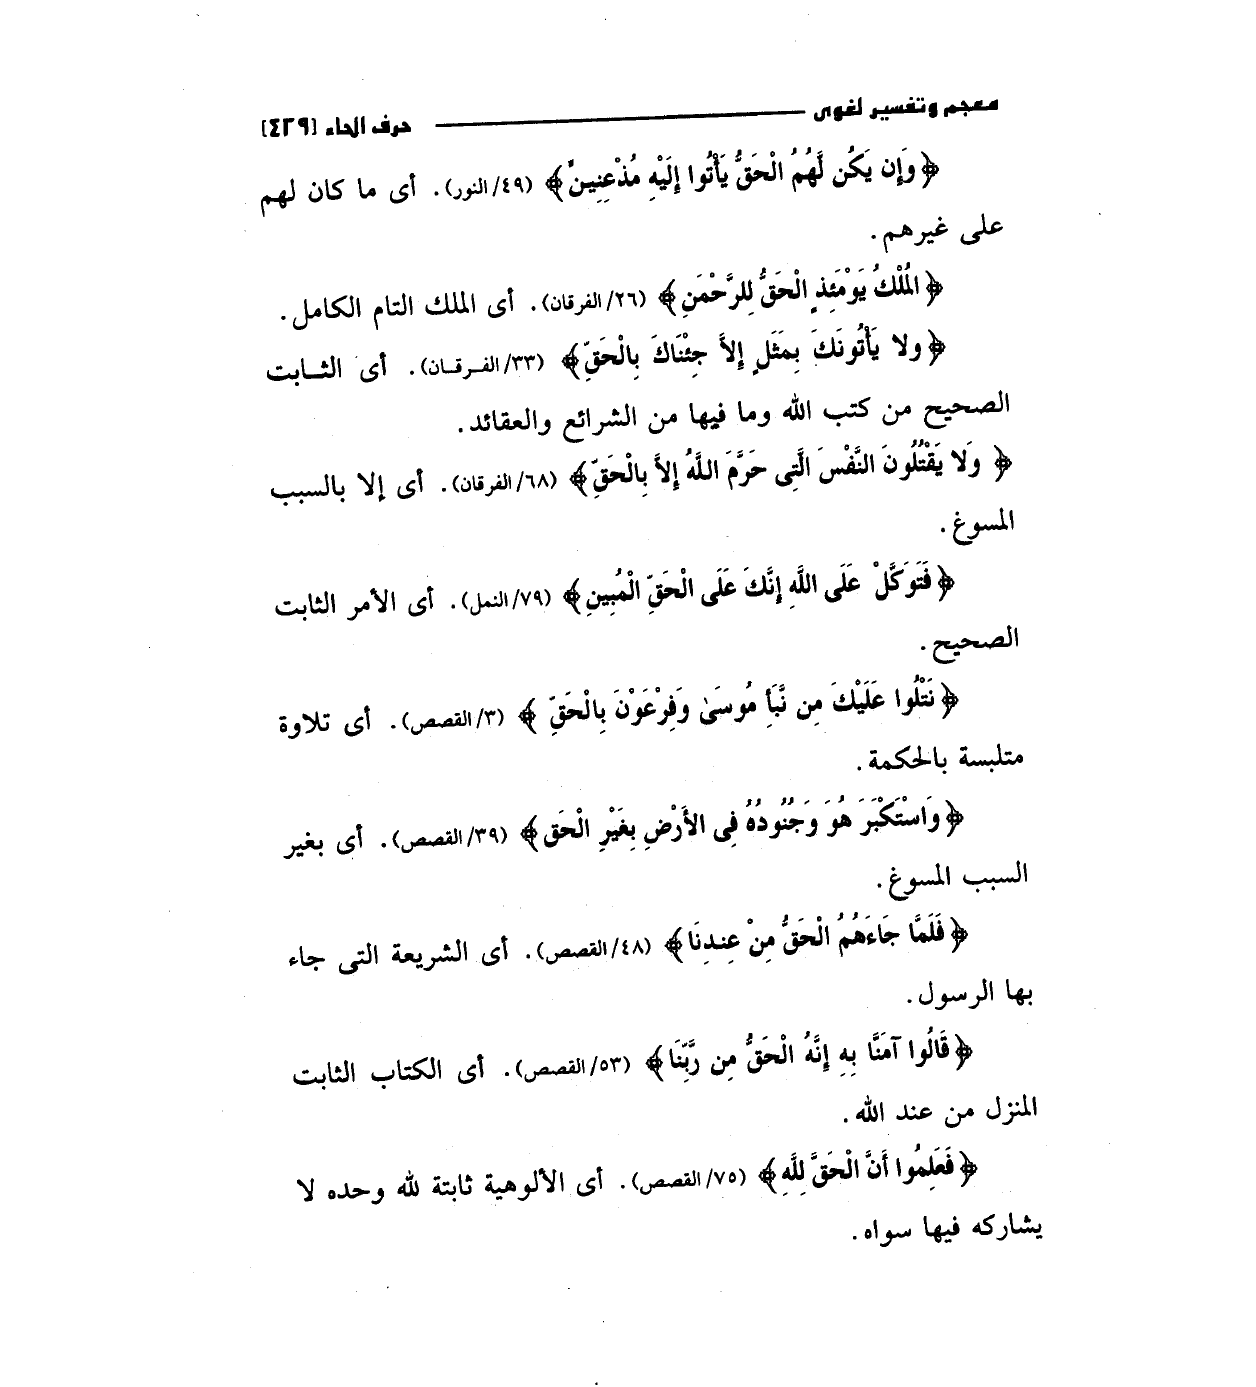 معجم وتفسير لغوى حرف الحاء [٤٣٩]
﴿وَإِن يَكُن لَّهُمُ الْحَقُّ يَأْتُوا إِلَيْهِ مُذْعِنِينَ﴾ (٤٩/النور). أى ما كان لهم
على غيرهم.
﴿الْمُلْكُ يَوْمَئِذٍ الْحَقُّ لِلرَّحْمَنِ﴾ (٢٦/الفرقان). أى الملك التام الكامل.
﴿ولا يَأْتُونَكَ بِمَثَلٍ إِلاَّ جِئْنَاكَ بِالْحَقِّ﴾ (٣٣/الفرقان). أى الثابت
الصحيح من كتب الله وما فيها من الشرائع والعقائد.
﴿وَلا يَقْتُلُونَ النَّفْسَ الَّتِى حَرَّمَ اللَّهُ إِلاَّ بِالْحَقِّ﴾ (٦٨/الفرقان). أى إلا بالسبب
المسوغ.
﴿فَتَوَكَّلْ عَلَى اللَّهِ إِنَّكَ عَلَى الْحَقِّ الْمُبِينِ﴾ (٧٩/النمل). أى الأمر الثابت
الصحيح.
﴿نَتْلُوا عَلَيْكَ مِن نَّبَأِ مُوسَىٰ وَفِرْعَوْنَ بِالْحَقِّ﴾ (٣/القصص). أى تلاوة
متلبسة بالحكمة.
﴿وَاسْتَكْبَرَ هُوَ وَجُنُودُهُ فِى الأَرْضِ بِغَيْرِ الْحَقِ﴾ (٣٩/القصص). أى بغير
السبب المسوغ.
﴿فَلَمَّا جَاءَهُمُ الْحَقُّ مِنْ عِندِنَا﴾ (٤٨/القصص). أى الشريعة التى جاء
بها الرسول.
﴿قَالُوا آمَنَّا بِهِ إِنَّهُ الْحَقُّ مِن رَّبِّنَا﴾ (٥٣/القصص). أى الكتاب الثابت
المنزل من عند الله.
﴿فَعَلِمُوا أَنَّ الْحَقَّ لِلَّهِ﴾ (٧٥/القصص). أى الألوهية ثابتة لله وحده لا
يشاركه فيها سواه.